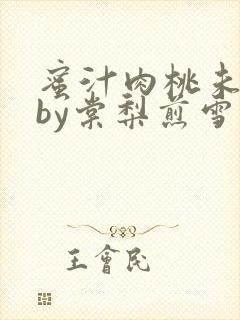 蜜汁肉桃未
by棠梨煎雪
王會民